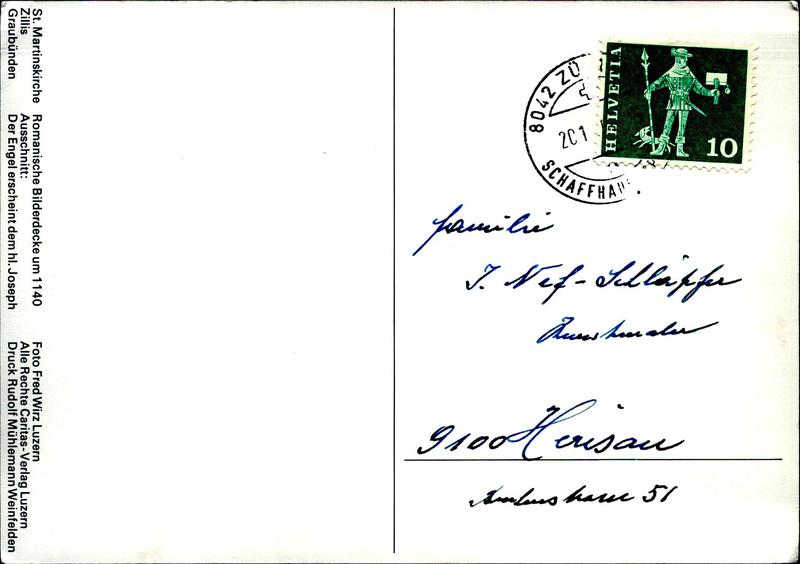 St. Martinskirche
Zillis
Graubünden
Romanische Bilderdecke um 1140
Ausschnitt:
Der Engel erscheint dem hl. Joseph
Foto Fred Wirz Luzern
Alle Rechte Caritas-Verlag Luzern
Druck Rudolf Mühlemann Weinfelden
8042 ZÜ
SCHAFFHAU
HELVETIA
10
Familie
J. Nef-Schläpfer
Kunstmaler
9100 Herisau
51